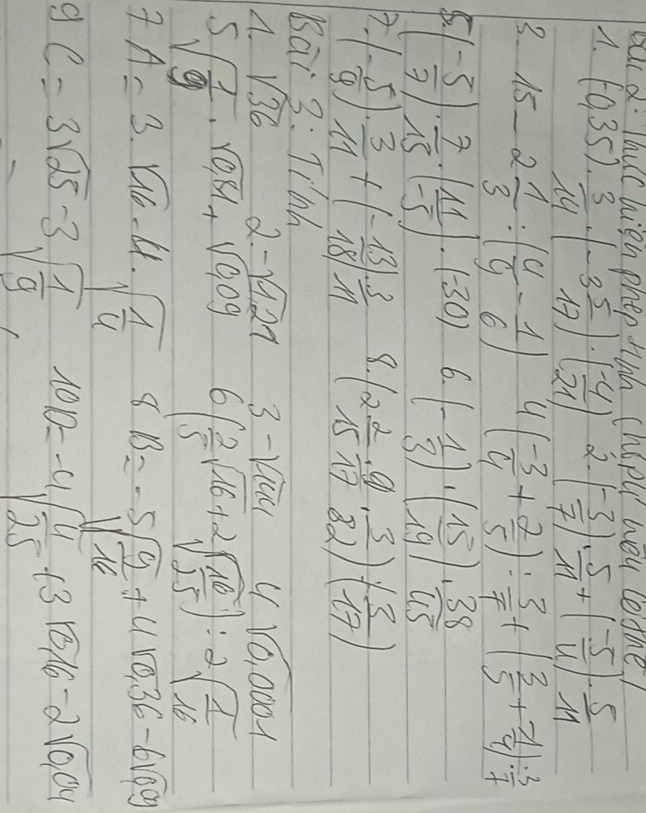 Bài 2: Thực hiện phép tính (hợp lý nếu có thể)
1. (-0,35) · 3/14 · (-3 5/17) · (-4/21) 2. (-3/7) · 5/11 + (-5/4) · 5/11
3. 15 - 2 1/3 : (4/9 - 1/6) 4 (-3/4 + 2/5) : 3/7 + (3/5 + -1/4) : 3/7
5. (-5/7) · 7/15 · (11/-5) · (-30) 6. (-1/3) · (15/19) · 38/45
7. (-5/9) · 3/11 + (-13/18) · 3/11 8. (2 2/15 · 9/17 · 3/32) : (-3/17)
Bài 3: Tính
1. √36 2. -√1,21 3 -√1,44 4 √0,0001
5 √(1/9) · √0,81 + √0,09 6 (2/5 √16 + 2√(16/25)) : 2√(1/16)
7 A = 3 · √16 - 4 · √(1/4) 8 B = -5√(9/16) + 4√0,36 - 6√0,09
9 C = 3√25 - 3√(1/9) 10 D = -4√(4/25) + 3√0,16 - 2√0,04